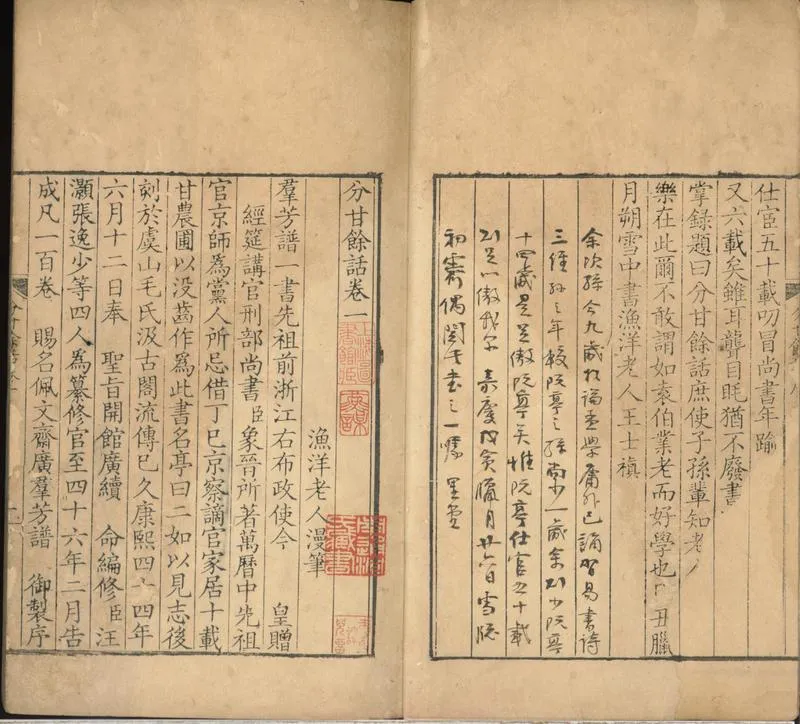 仕宦五十載叨冒尚書年踰
又六載矣雖耳聾目眊猶不廢書
掌録題曰分甘餘話庶使子孫輩知老
樂在此爾不敢謂如袁伯業老而好學也 丑臘
月朔雪中書漁洋老人王士禛
余次孫今九歲於論孟學庸外已誦習易書詩
三經孫之年較阮亭之孫尚少一歲余年少阮亭
十四歲是足傲阮亭矣惟阮亭仕宦五十載
足以傲我尔 嘉慶戊寅臘月廿六日雪隂
初霽偶閲于書之一噱 里堂
分甘餘話卷一
漁洋老人漫筆
羣芳譜一書先祖前浙江右布政使今 皇贈
經筵講官刑部尚書臣象晉所著萬曆中先祖
官京師為黨人所忌借丁巳京察謫官家居十載
甘農圃以没齒作為此書名亭曰二如以見志後
刻於虞山毛氏汲古閣流傳已久康熙四十四年
六月十二日奉 聖旨開館廣續 命編修臣汪
灝張逸少等四人為纂修官至四十六年二月告
成凡一百卷 賜名佩文齋廣羣芳譜 御製序